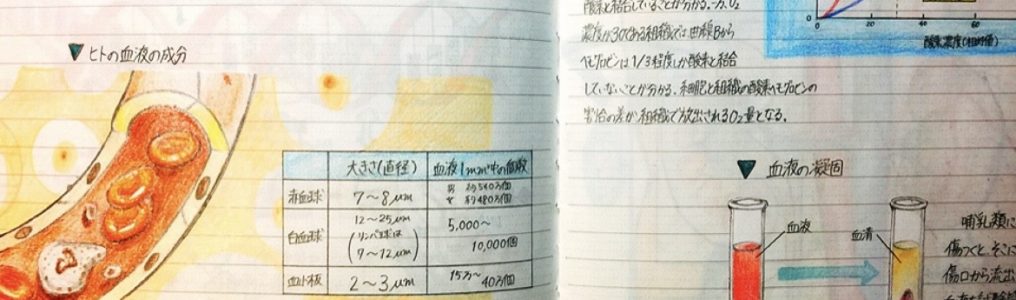 ▼ ヒトの血液の成分
大きさ(直径) 血液1mm³中の個数
赤血球 7〜8μm 男 約540万個
女 約480万個
白血球 12〜25μm
(リンパ球は
7〜12μm) 5,000〜
10,000個
血小板 2〜3μm 15万〜
40万個
酸素と結合していることが分かる。一方、O₂
濃度が30である組織では、曲線Bから
ヘモグロビンは1/3程度しか酸素と結合
していないことが分かる。
割合の差が、組織で放出されるO₂量となる。
0 30 60
酸素濃度(相対値)
▼ 血液の凝固
血液
血清
哺乳類に
傷つくと、そこに
傷口から流出